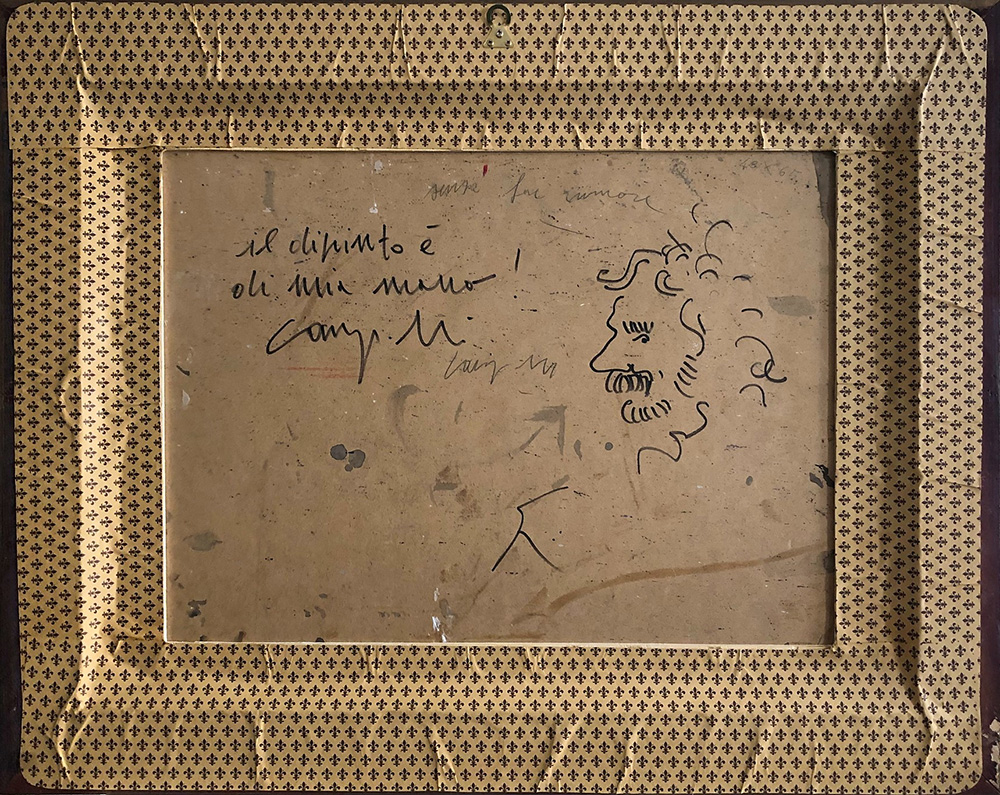 senza far rumore
il dipinto è
di mia mano !
Campelli
Campelli